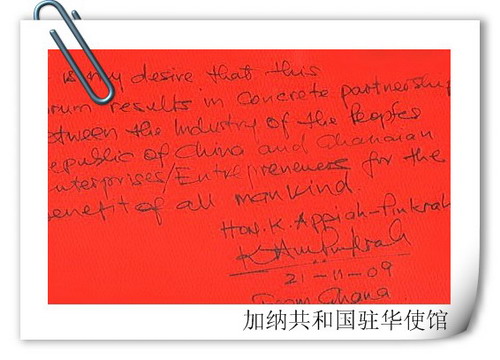 is my desire that this
rum results in concrete partnership
etween the Industry of the Peoples
epublic of China and Ghanaian
nterprises/Entrepreneurs for the
enefit of all mankind.
Hon. K. Appiah-Pinkrah
21-11-09
From Ghana
加纳共和国驻华使馆